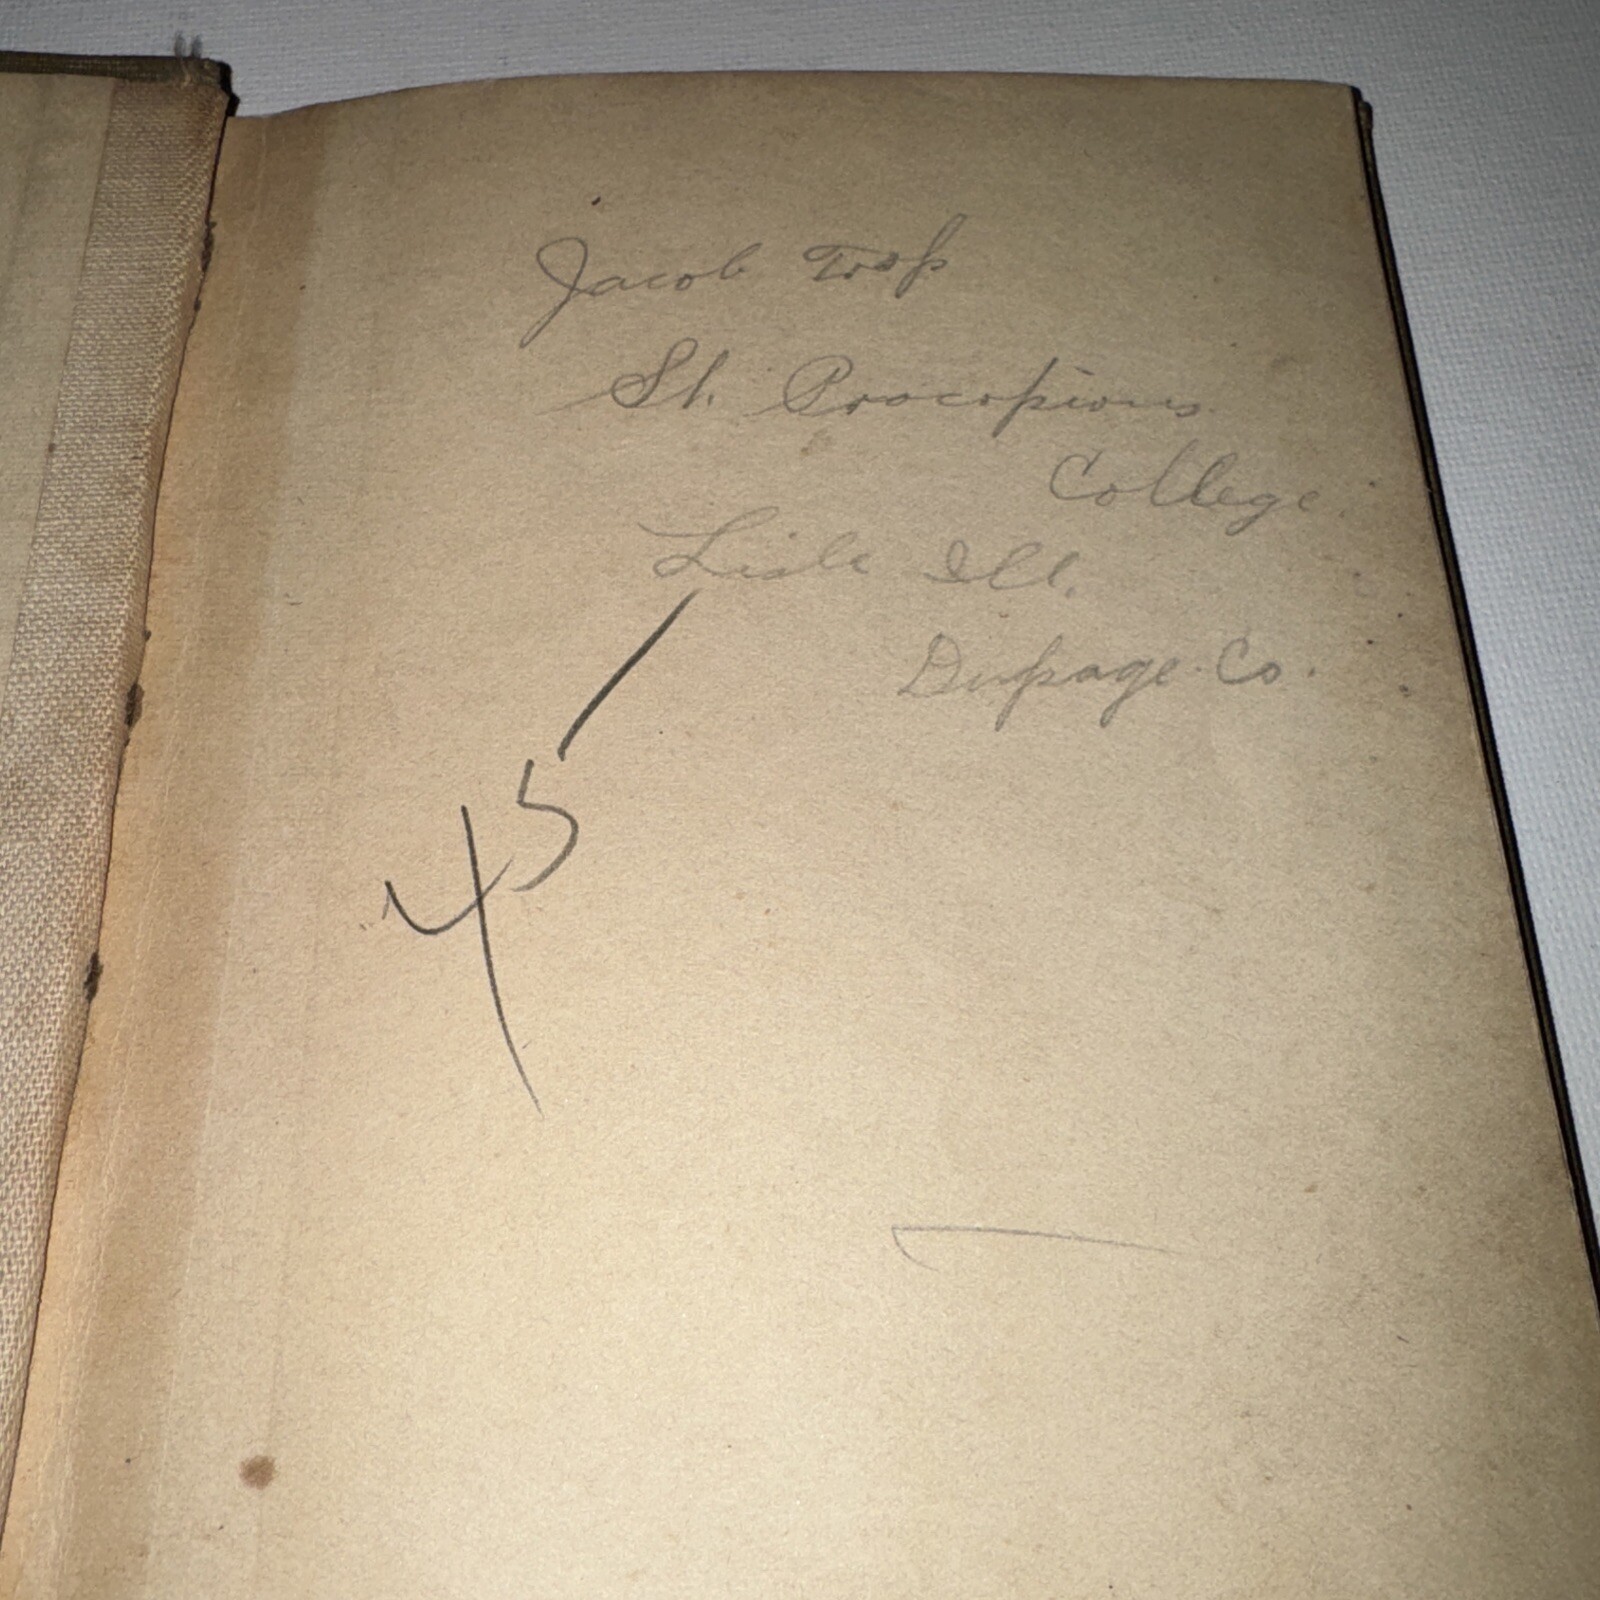 Jacob Trop
St. Procopious
College.
Lisle Ill.
Dupage Co.
45